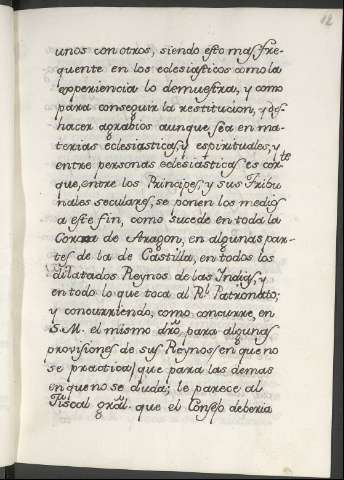 12
unos con otros, siendo esto mas fre-
quente en los eclesiasticos como la
experiencia lo demuestra, y como
para conseguir la restitucion, y des-
hacer agrabios aunque sea en ma-
terias eclesiasticas, y espirituales, y
entre personas eclesiasticas es corte
que, entre los Principes, y sus Tribu
nales seculares, se ponen los medios
a este fin, como sucede en toda la
Corona de Aragon, en algunas par-
tes de la de Castilla, en todos los
dilatados Reynos de las Indias, y
en todo lo que toca al Rl. Patronato;
y concurriendo, como concurre, en
S.M. el mismo dro, para algunas
provisiones de sus Reynos en que no
se practica, que para las demas
en que no se duda; le parece al
Fiscal gral. que el Consejo deberia